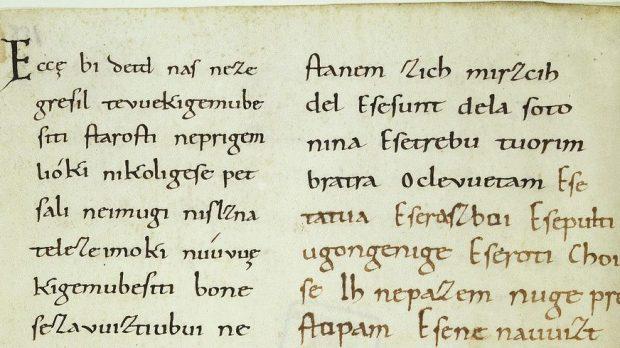 Eccę bi detd naſ neze
greſil tevuekigemube
ſiti ſtaroſti neprigem
lióki nikoligeſe pet
ſali neimugi niſlzna
telezeimoki nuúvuę
kigemubeſiti bone
ſezavuiztiubui ne
ſtanem zich mirzcih
del Eſeſunt dela ſoto
nina Eſetrebu tuorim
bratra Oclevuetam Eſe
tatua Eſerazboi Eſepulti
ugongenige Eſeroti Choi
ſe Ih nepazem nuge pre
ſtopam Eſene nauvizt